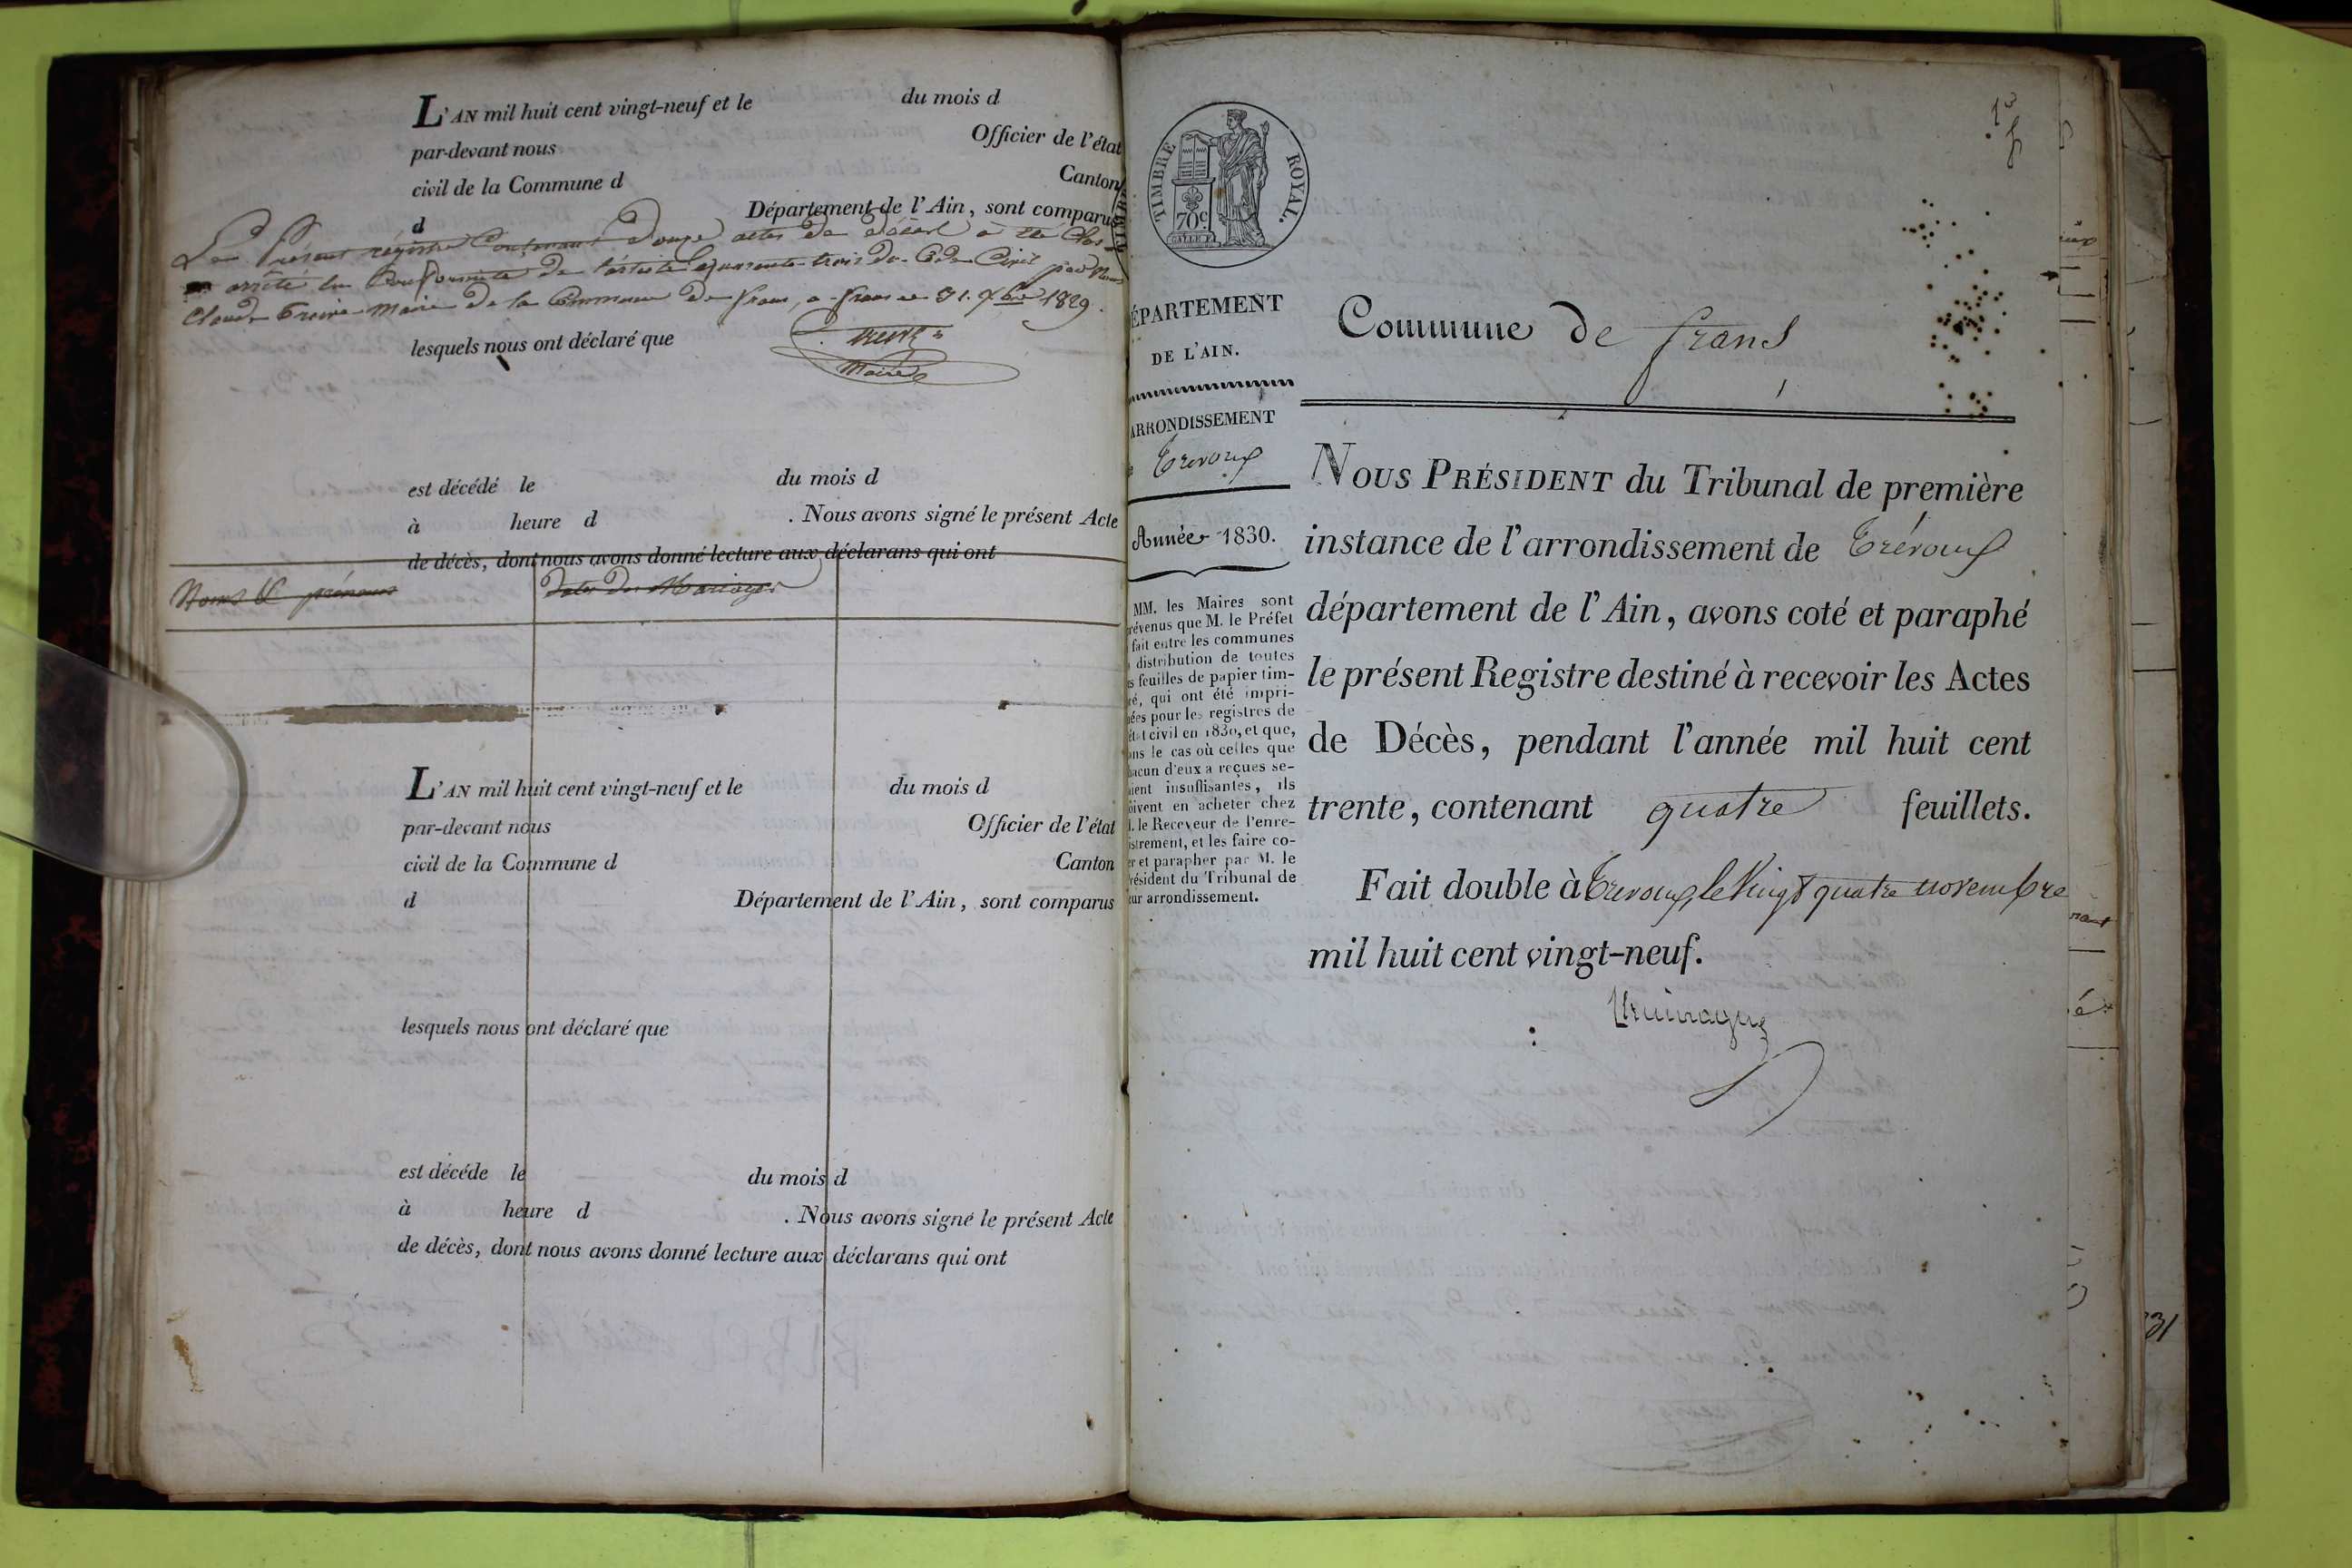 L'AN mil huit cent vingt-neuf et le du mois d
par-devant nous Officier de l'état
civil de la Commune d Canton
d Département de l'Ain, sont comparus
Le Présent régistre Contenant Douze actes de décès a été Clos
arrêté en Conformité de l'article quarante-trois du Code Civil par Nous
Claude Treive Maire de la Commune de frans, a frans le 31. Xbre 1829.
lesquels nous ont déclaré que
Maire
est décédé le du mois d
à heure d . Nous avons signé le présent Acte
de décès, dont nous avons donné lecture aux déclarans qui ont
Noms & prénoms Dates des Mariages
L'AN mil huit cent vingt-neuf et le du mois d
par-devant nous Officier de l'état
civil de la Commune d Canton
d Département de l'Ain, sont comparus
lesquels nous ont déclaré que
est décéde le du mois d
à heure d . Nous avons signé le présent Acte
de décès, dont nous avons donné lecture aux déclarans qui ont
TIMBRE ROYAL.
70c
ÉPARTEMENT
DE L'AIN.
ARRONDISSEMENT
Trévoux
Année 1830.
MM. les Maires sont
révenus que M. le Préfet
fait entre les communes
distribution de toutes
s feuilles de papier tim-
ré, qui ont été impri-
ées pour les registres de
état civil en 1830, et que,
ans le cas où celles que
hacun d'eux a reçues se-
aient insuffisantes, ils
oivent en acheter chez
. le Receveur de l'enre-
istrement, et les faire co-
er et parapher par M. le
résident du Tribunal de
eur arrondissement.
Commune de frans
NOUS PRÉSIDENT du Tribunal de première
instance de l'arrondissement de Trévoux
département de l'Ain, avons coté et paraphé
le présent Registre destiné à recevoir les Actes
de Décès, pendant l'année mil huit cent
trente, contenant quatre feuillets.
Fait double à Trevoux, le Vingt quatre novembre
mil huit cent vingt-neuf.
31